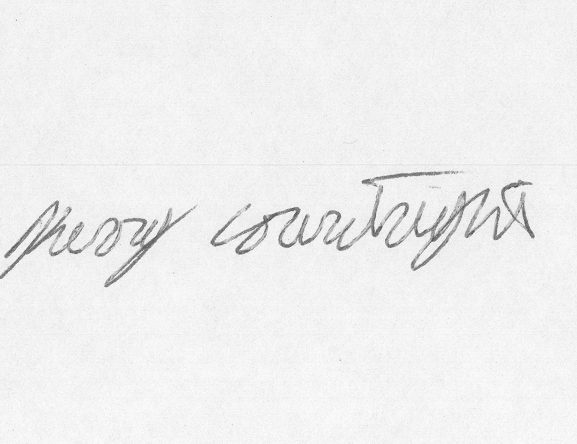 perry courtright